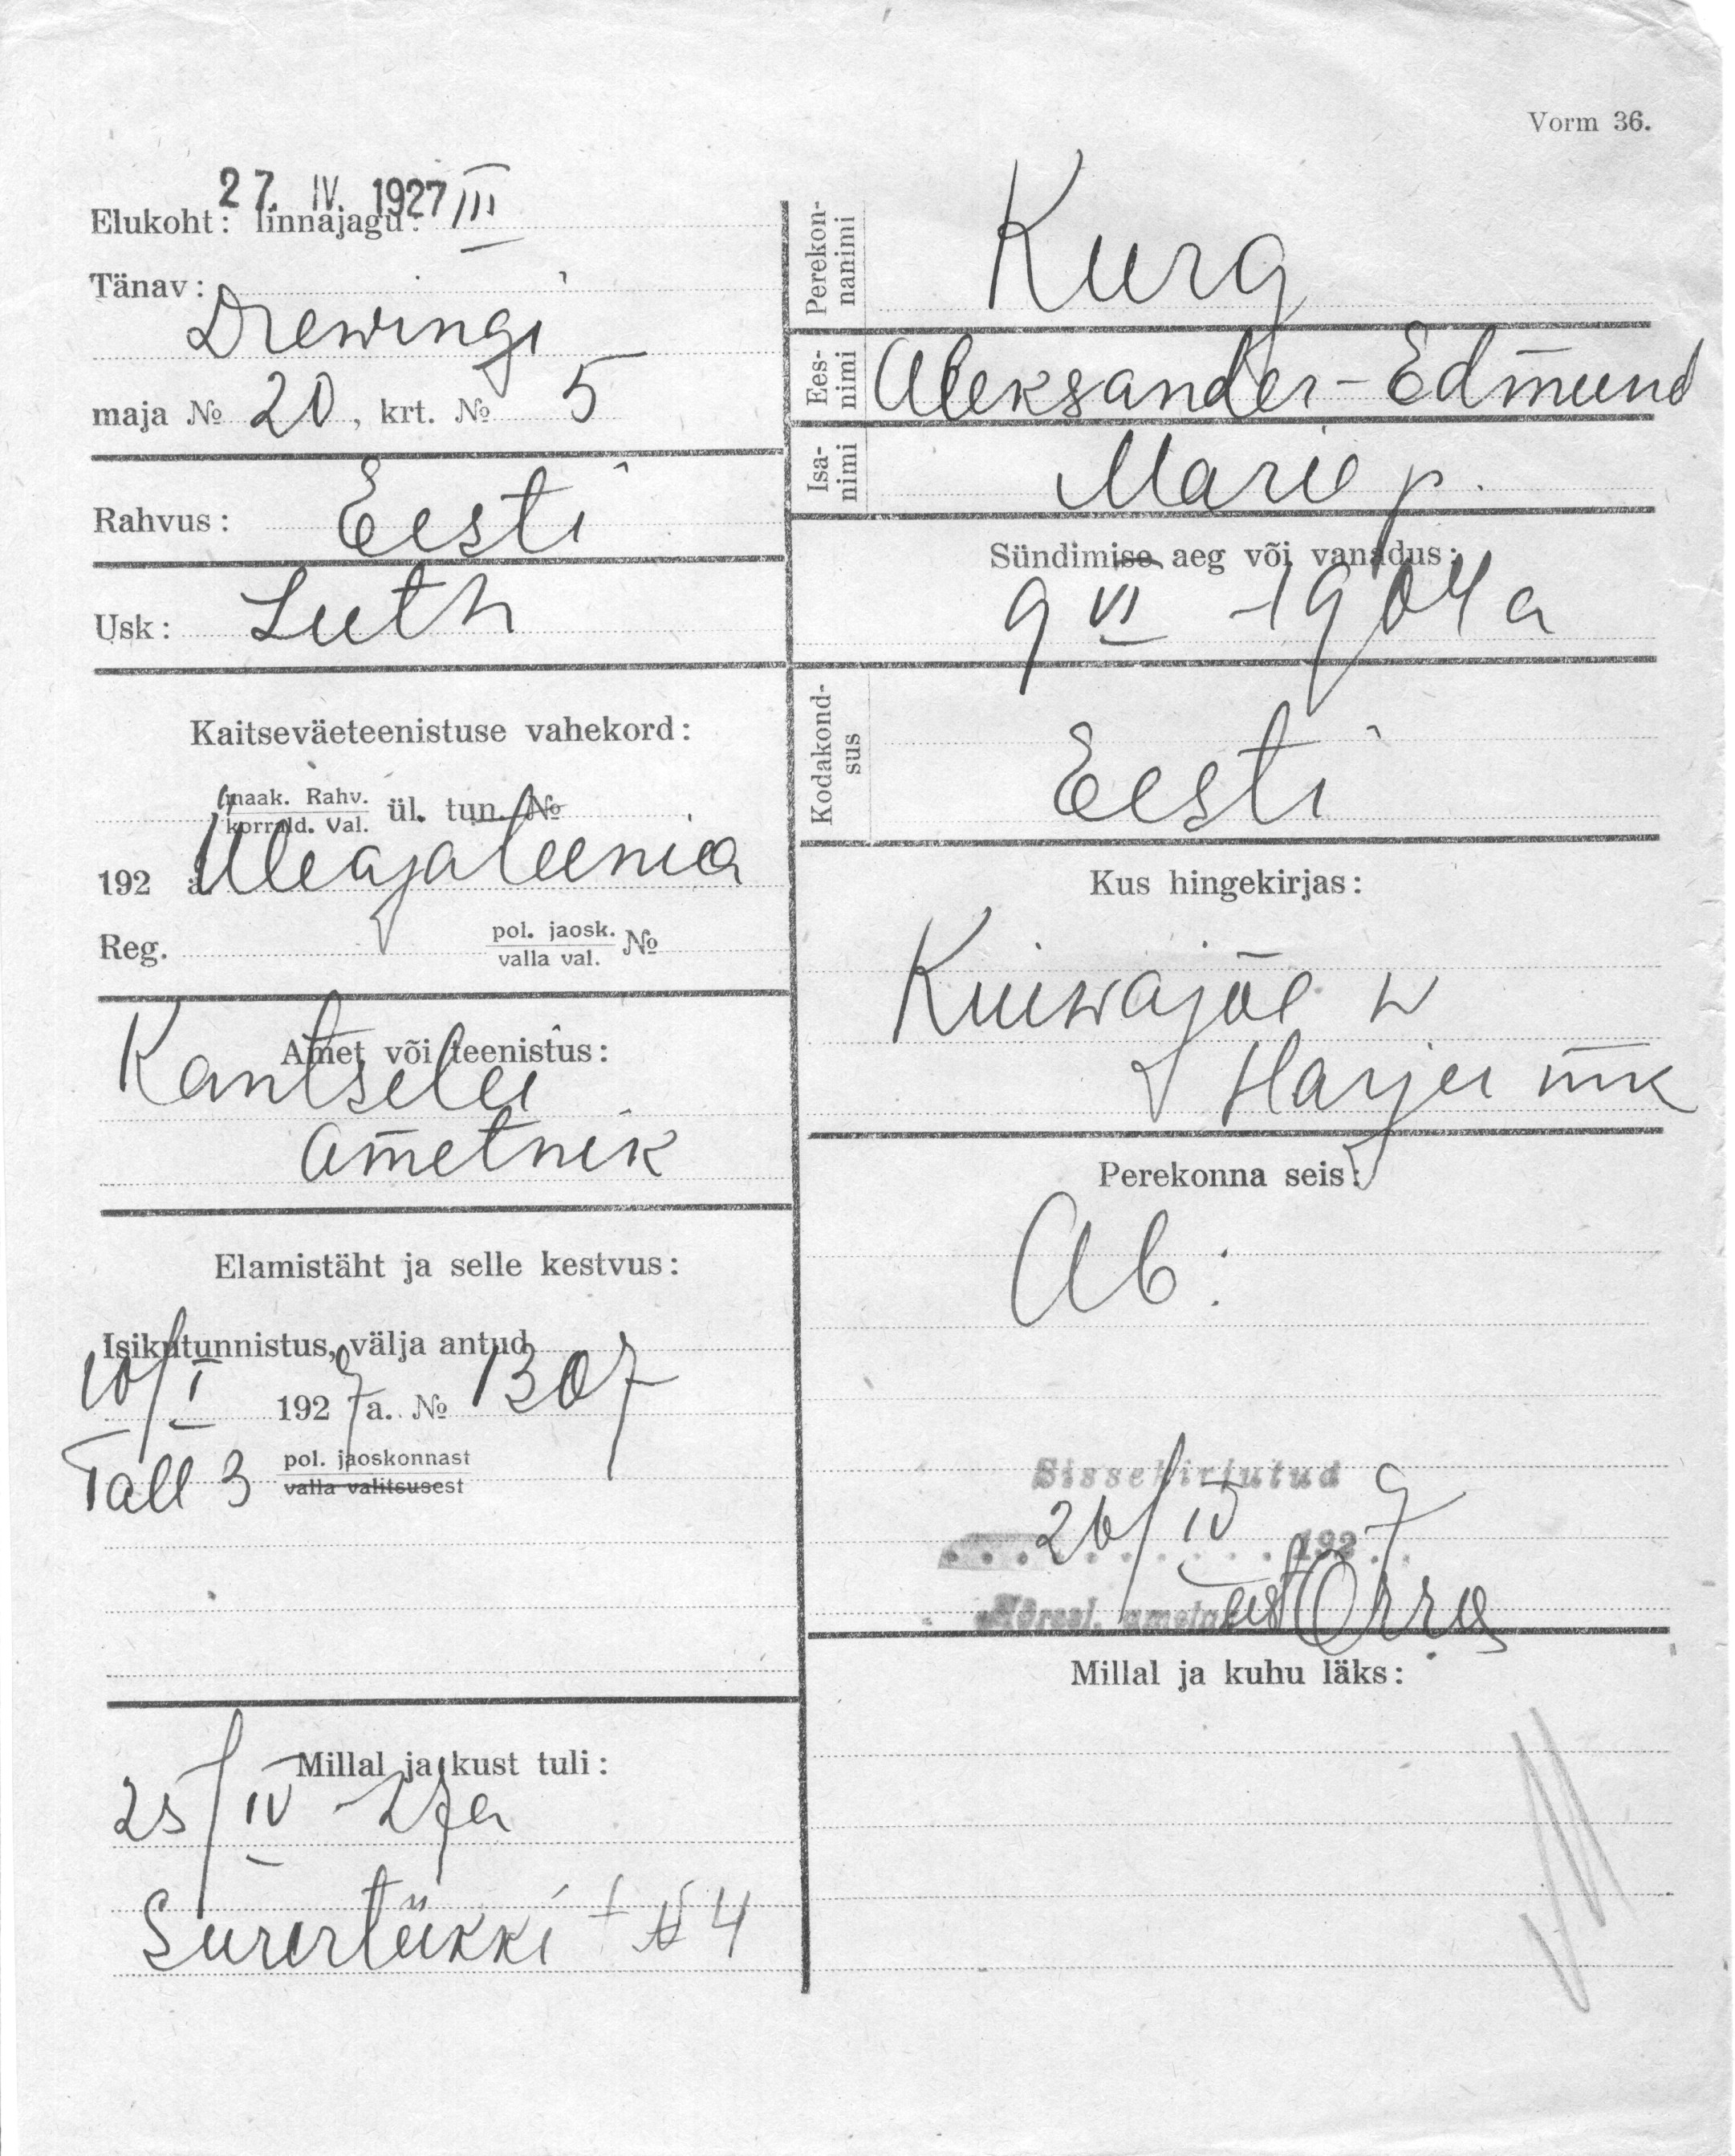 Vorm 36.
27. IV. 1927
Elukoht: linnajagu: III
Tänav:
Drewingi
maja № 20, krt. № 5
Rahvus: Eesti
Usk: Luth
Kaitseväeteenistuse vahekord:
maak. Rahv.
korrald. Val. ül. tun. №
192 a. Üleajateenia
Reg. pol. jaosk.
valla val. №
Amet või teenistus:
Kantselei
ametnik
Elamistäht ja selle kestvus:
Isikutunnistus, välja antud
10/I 1927 a. № 1307
Tall 3 pol. jaoskonnast
valla valitsusest
Millal ja kust tuli:
25/IV -27a
Suurtükki t № 4
Perekonnanimi
Kurg
Eesnimi
Aleksander-Edmund
Isanimi
Marie p.
Sündimise aeg või vanadus:
9 VI -1904 a
Kodakondsus
Eesti
Kus hingekirjas:
Kuiwajõe w
Harju mk
Perekonna seis:
Ab.
Sissekirjutud
26/IV 1927
Orra
Millal ja kuhu läks: